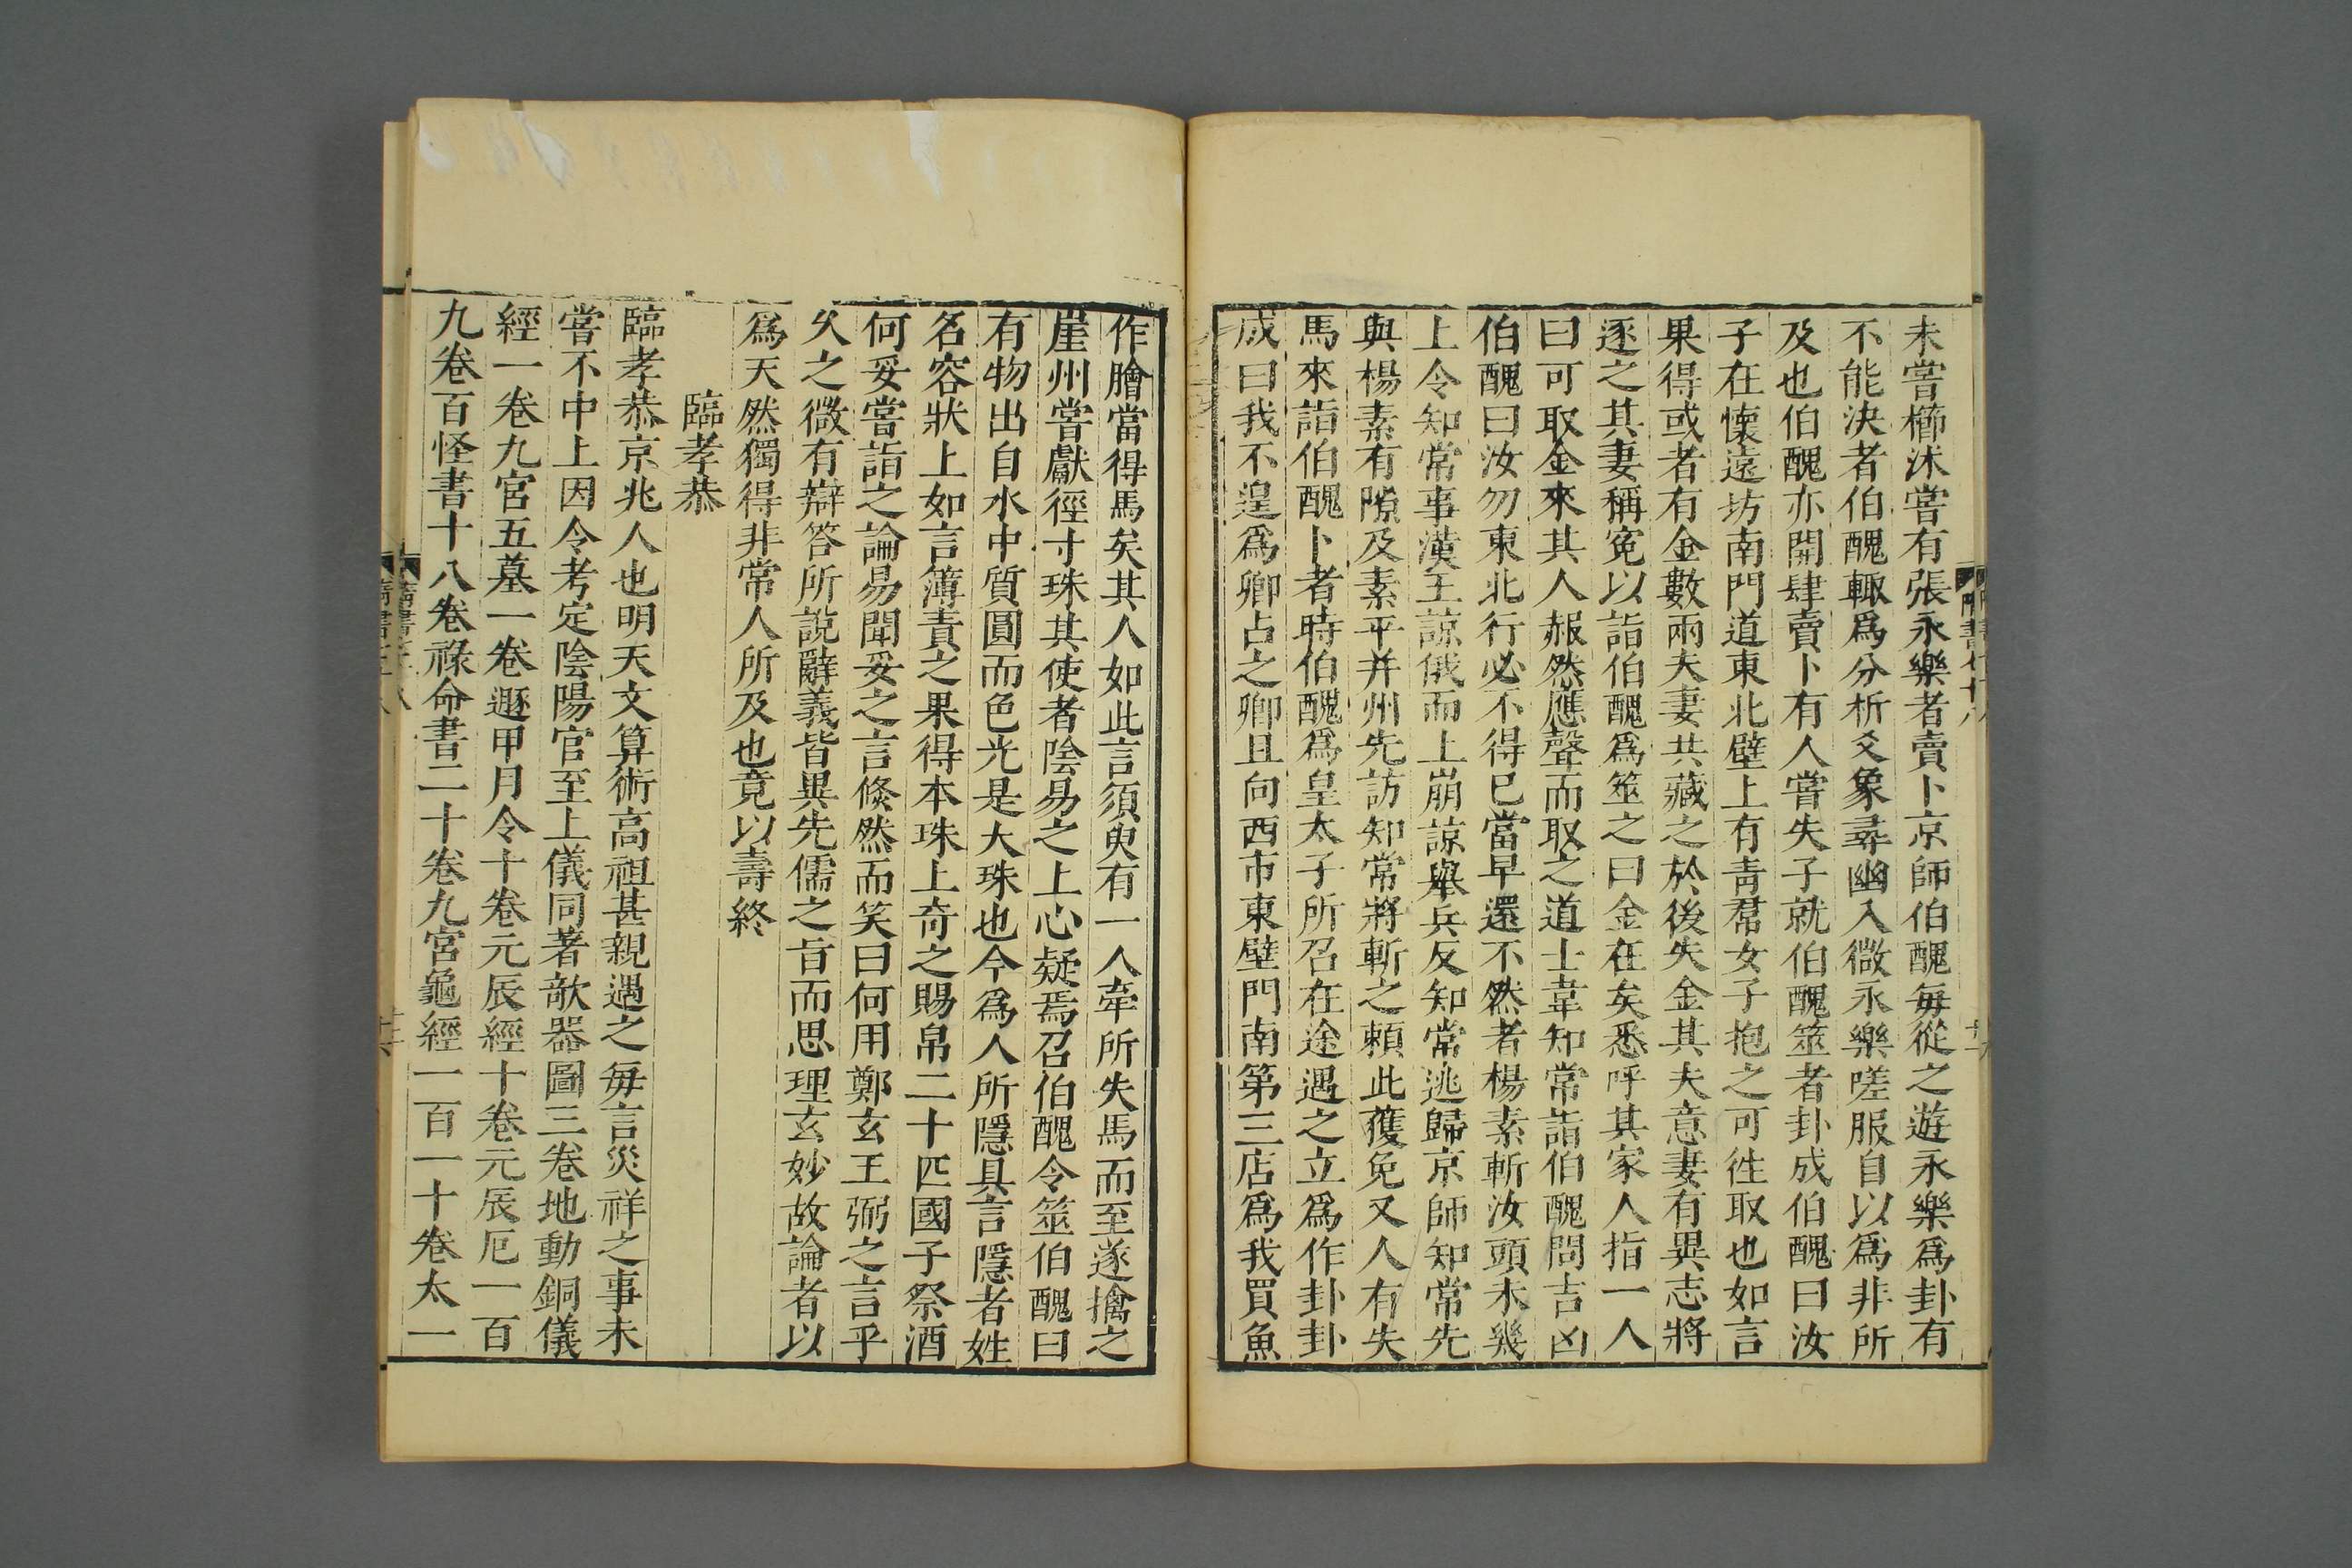 未嘗櫛沐嘗有張永樂者賣卜京師伯醜每從之遊永樂爲卦有
不能決者伯醜輙爲分析爻象尋幽入微永樂嗟服自以爲非所
及也伯醜亦開肆賣卜有人嘗失子就伯醜筮者卦成伯醜曰汝
子在懷遠坊南門道東北壁上有青帬女子抱之可徃取也如言
果得或者有金數兩夫妻共藏之於後失金其夫意妻有異志將
逐之其妻稱冤以詣伯醜爲筮之曰金在矣悉呼其家人指一人
曰可取金來其人赧然應聲而取之道士韋知常詣伯醜問吉凶
伯醜曰汝勿東北行必不得已當早還不然者楊素斬汝頭未幾
上令知常事漢王諒俄而上崩諒舉兵反知常逃歸京師知常先
與楊素有隙及素平并州先訪知常將斬之頼此獲免又人有失
馬來詣伯醜卜者時伯醜爲皇太子所召在途遇之立爲作卦卦
成曰我不遑爲卿占之卿且向西市東壁門南第三店爲我買魚
作膾當得馬矣其人如此言須臾有一人牽所失馬而至遂擒之
崖州嘗獻徑寸珠其使者陰易之上心疑焉召伯醜令筮伯醜曰
有物出自水中質圓而色光是大珠也今爲人所隱具言隱者姓
名容狀上如言簿責之果得本珠上奇之賜帛二十匹國子祭酒
何妥嘗詣之論易聞妥之言倏然而笑曰何用鄭玄王弼之言乎
久之微有辯答所說辭義皆異先儒之旨而思理玄妙故論者以
爲天然獨得非常人所及也竟以壽終
臨孝恭
臨孝恭京兆人也明天文算術高祖甚親遇之每言災祥之事未
嘗不中上因令考定陰陽官至上儀同著欹器圖三卷地動銅儀
經一卷九宮五墓一卷遯甲月令十卷元辰經十卷元辰厄一百
九卷百怪書十八卷祿命書二十卷九宮龜經一百一十卷太一